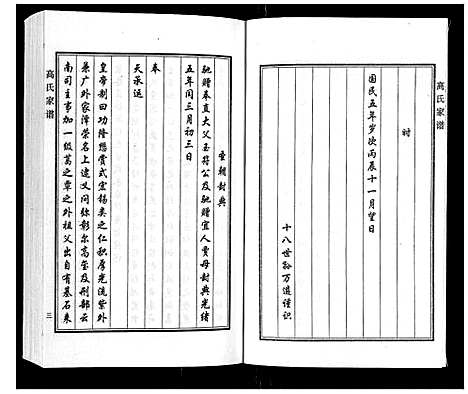 高氏家谱
时
国民五年岁次丙辰十一月望日
十八世孙万道谨识
圣朝封典
驰赠奉直大父玉符公及驰赠宜人贾母封典光绪
五年闰三月初三日
奉
天承运
皇帝制曰功隆懋赏式宏锡类之仁积厚光流紫外
兼广外家泽荣名上逮义问弥彰尔高玺及刑部云
南司主事加一级葛之覃之外祖父出自有基石来
高氏家谱
三